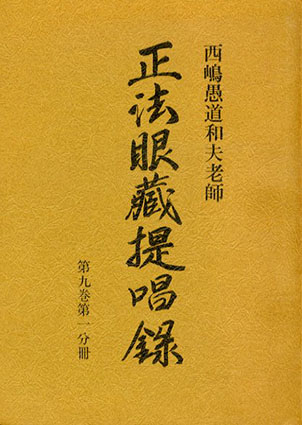 西嶋愚道和夫老師
正法眼藏提唱録
第九巻第一分冊